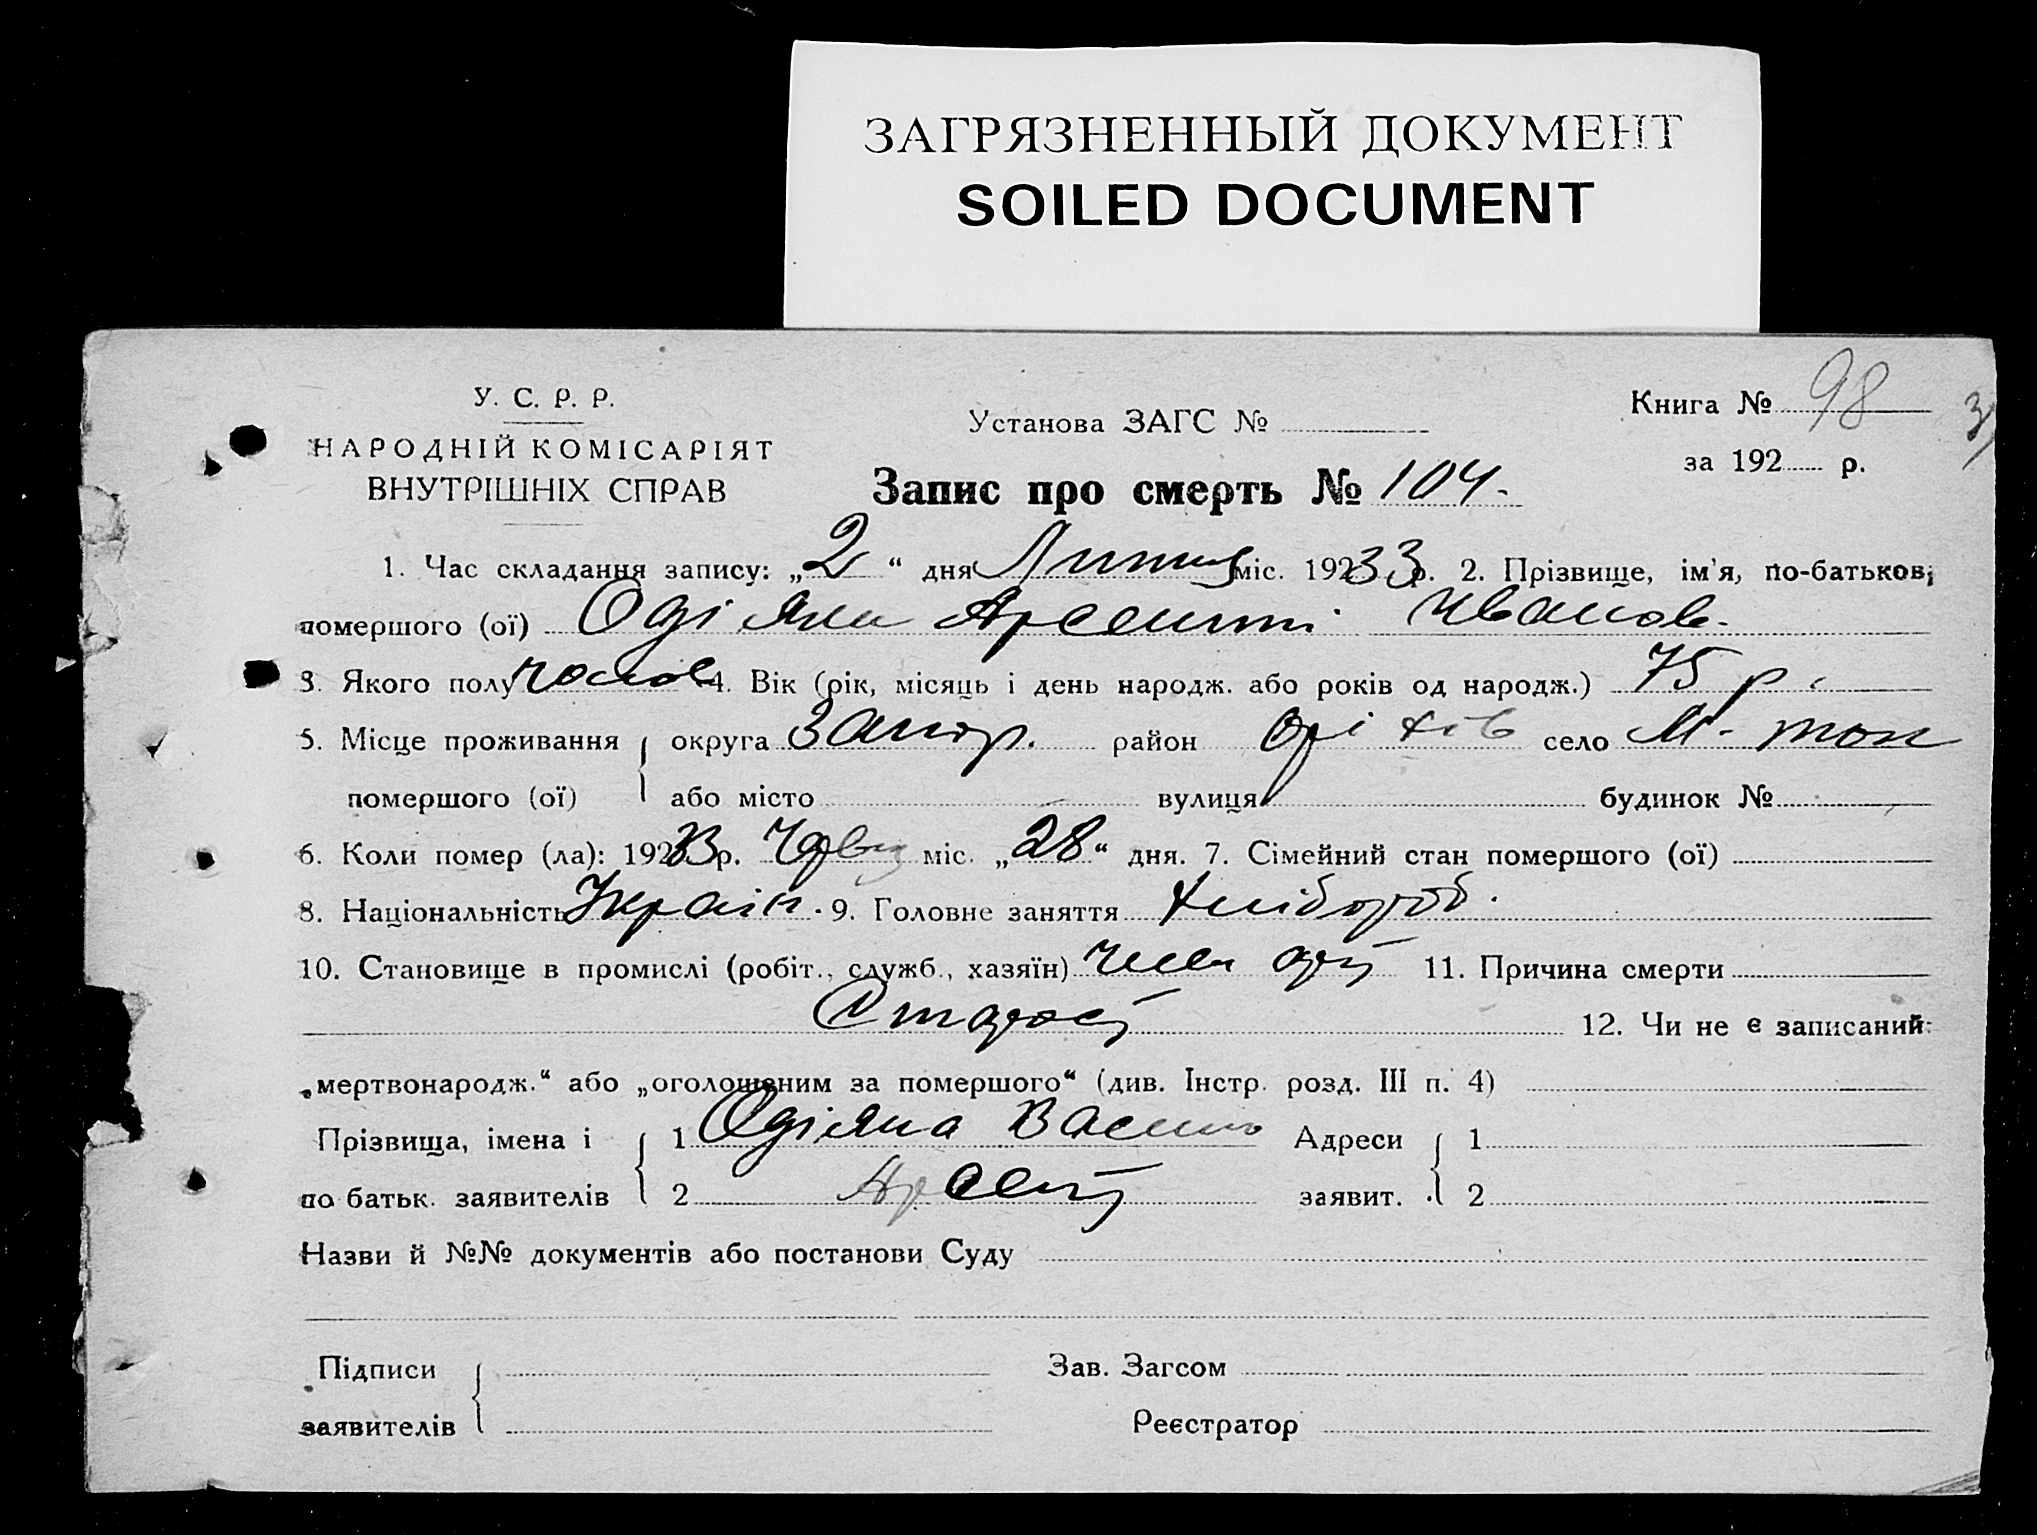 ЗАГРЯЗНЕННЫЙ ДОКУМЕНТ
SOILED DOCUMENT
У. С. Р. Р.
НАРОДНІЙ КОМІСАРІЯТ
ВНУТРІШНІХ СПРАВ
Установа ЗАГС №
Книга № 98
за 192 р.
Запис про смерть № 104.
1. Час складання запису: „2“ дня Липня міс. 19233 р. 2. Прізвище, ім'я, по-батькові
помершого (ої) Арсентій Иванов.
3. Якого полу чолов 4. Вік (рік, місяць і день народж. або років од народж.) 75 р.
5. Місце проживання округа Запор. район Оріхів село М-ток
помершого (ої) або місто вулиця будинок №
6. Коли помер (ла): 19233 р. міс. „28“ дня. 7. Сімейний стан помершого (ої)
8. Національність Україн. 9. Головне заняття хлібороб.
10. Становище в промислі (робіт., служб., хазяїн) член 11. Причина смерти
Старост 12. Чи не є записаний:
„мертвонародж.“ або „оголошеним за помершого“ (див. Інстр. розд. III п. 4)
Прізвища, імена і 1 Василь Адреси 1
по батьк. заявителів 2 Арсент заявит. 2
Назви й №№ документів або постанови Суду
Підписи Зав. Загсом
заявителів Реєстратор